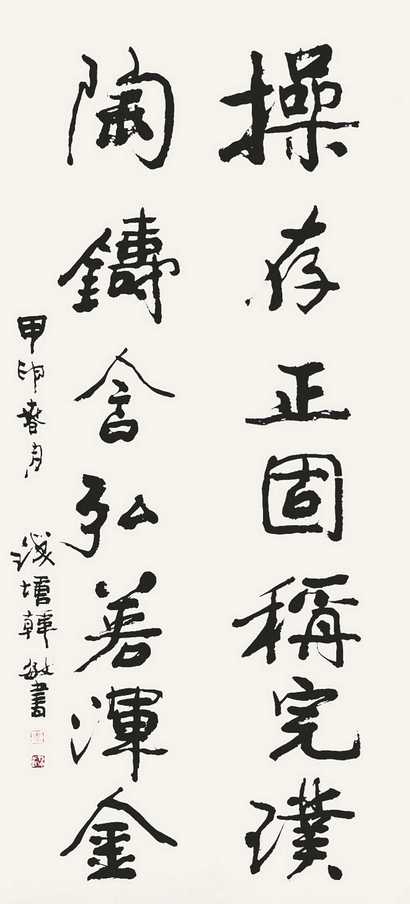 操存正固稱完璞
陶鑄含弘若渾金
甲申春月 錢塘韓敏書